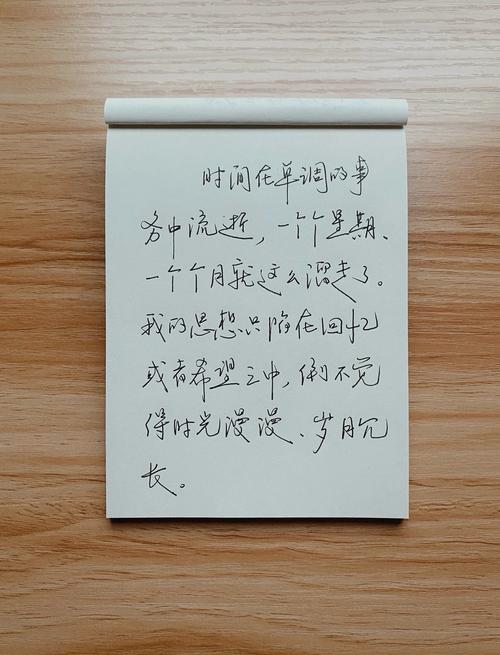 时间在单调的事
务中流逝，一个个星期、
一个个月就这么溜走了。
我的思想只陷在回忆
或者希望之中，倒不觉
得时光漫漫、岁月冗
长。